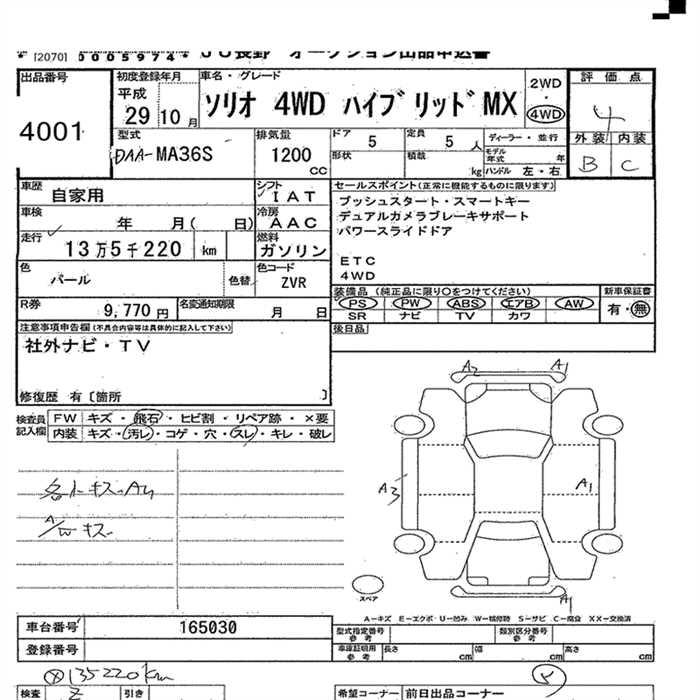 * [2070] 0005974* JU長野 オークション出品申込書
出品番号 初度登録年月 車名・グレード 2WD・4WD 評価点
4001 平成29 10月 ソリオ 4WD ハイブリッド MX 4
型式 排気量 ドア 5 定員 5人 ディーラー・並行 外装 内装
DAA-MA36S 1200cc 形状 積載 kg モデル年式 年 ハンドル 左・右 B C
車歴 自家用 シフト IAT セールスポイント(正常に機能するものに限ります)
車検 年 月( 日) 冷房 AAC プッシュスタート・スマートキー
デュアルカメラブレーキサポート
走行 13万5千220 km 燃料 ガソリン パワースライドドア
色 パール 色替 色コード ZVR ETC
4WD
R券 9,770円 名変通知期限 月 日 装備品(純正品に限り〇をつけてください) 新車保証書
PS PW ABS エアB AW 有・無
SR ナビ TV カワ
注意事項申告欄(不具合内容等は具体的に記入して下さい) 後日品
社外ナビ・TV
修復歴 有〔箇所 〕
検査員記入欄 FW キズ・飛石・ヒビ割・リペア跡・×要
内装 キズ・汚レ・コゲ・穴・スレ・キレ・破レ
A2 A1
A3 A1
A1
スペア
A-キズ E-エクボ U-凹み W-補修跡 S-サビ C-腐食 XX-交換済
車台番号 165030 型式指定番号 参考 類別区分番号 参考
登録番号 車庫証明用 参考 長さ cm 幅 cm 高さ cm
135220km
検査 引き 希望コーナー 前日出品コーナー